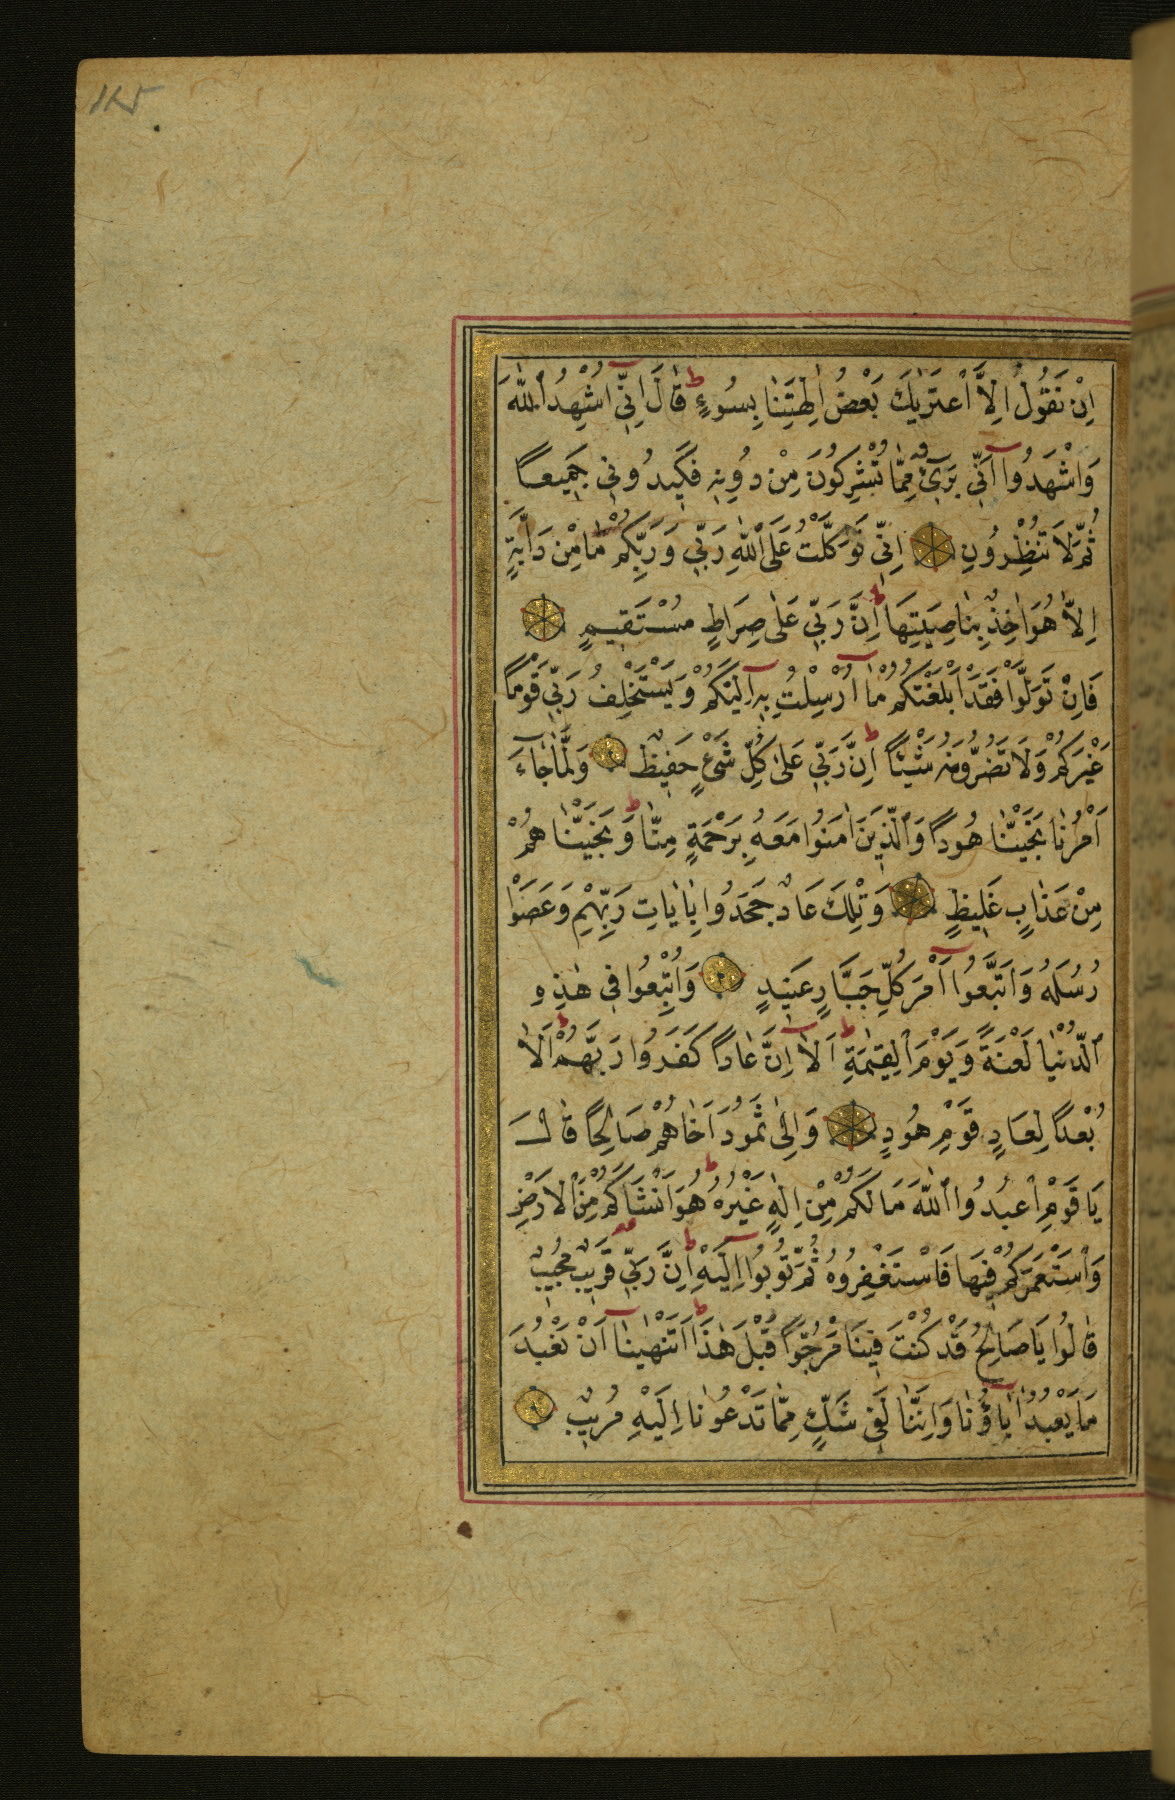 ١٢٥
اِنْ نَقُولُ اِلاَّ اعْتَرٰيكَ بَعْضُ اٰلِهَتِنَا بِسُوءٍ ط قَالَ اِنّٓي اُشْهِدُ اللّٰهَ
وَاشْهَدُوٓا اَنّٓي بَرِٓئٌ مِمَّا تُشْرِكُونَ مِنْ دُونِهٖ فَكِيدُونٖي جَمِيعاً
ثُمَّ لَا تُنْظِرُونِ اِنّٖي تَوَكَّلْتُ عَلَى اللّٰهِ رَبّٖي وَرَبِّكُمْ ط مَا مِنْ دَابَّةٍ
اِلاَّ هُوَ اٰخِذٌ بِنَاصِيَتِهَا ط اِنَّ رَبّٖي عَلٰى صِرَاطٍ مُسْتَقِيمٍ
فَاِنْ تَوَلَّوْا فَقَدْ اَبْلَغْتُكُمْ مَٓا اُرْسِلْتُ بِهٖٓ اِلَيْكُمْ وَيَسْتَخْلِفُ رَبّٖي قَوْماً
غَيْرَكُمْ وَلَا تَضُرُّونَهُ شَيْئاً ط اِنَّ رَبّٖي عَلٰى كُلِّ شَيْءٍ حَفِيظٌ وَلَمَّا جَٓاءَ
اَمْرُنَا نَجَّيْنَا هُوداً وَالَّذِينَ اٰمَنُوا مَعَهُ بِرَحْمَةٍ مِنَّا ط وَنَجَّيْنَاهُمْ
مِنْ عَذَابٍ غَلِيظٍ وَتِلْكَ عَادٌ جَحَدُوا بِاٰيَاتِ رَبِّهِمْ وَعَصَوْا
رُسُلَهُ وَاتَّبَعُوٓا اَمْرَ كُلِّ جَبَّارٍ عَنِيدٍ وَاُتْبِعُوا فِي هٰذِهِ
الدُّنْيَا لَعْنَةً وَيَوْمَ الْقِيٰمَةِ ط اَلَٓا اِنَّ عَاداً كَفَرُوا رَبَّهُمْ ط اَلَا
بُعْداً لِعَادٍ قَوْمِ هُودٍ وَاِلٰى ثَمُودَ اَخَاهُمْ صَالِحاً قَالَ
يَا قَوْمِ اعْبُدُوا اللّٰهَ مَا لَكُمْ مِنْ اِلٰهٍ غَيْرُهُ ط هُوَ اَنْشَاَكُمْ مِنَ الْاَرْضِ
وَاسْتَعْمَرَكُمْ فِيهَا فَاسْتَغْفِرُوهُ ثُمَّ تُوبُوٓا اِلَيْهِ ط اِنَّ رَبّٖي قَرِيبٌ مُجِيبٌ
قَالُوا يَا صَالِحُ قَدْ كُنْتَ فِينَا مَرْجُوًّا قَبْلَ هٰذَا ط اَتَنْهٰينَٓا اَنْ نَعْبُدَ
مَا يَعْبُدُ اٰبَٓاؤُنَا وَاِنَّنَا لَفِي شَكٍّ مِمَّا تَدْعُونَا اِلَيْهِ مُرِيبٍ